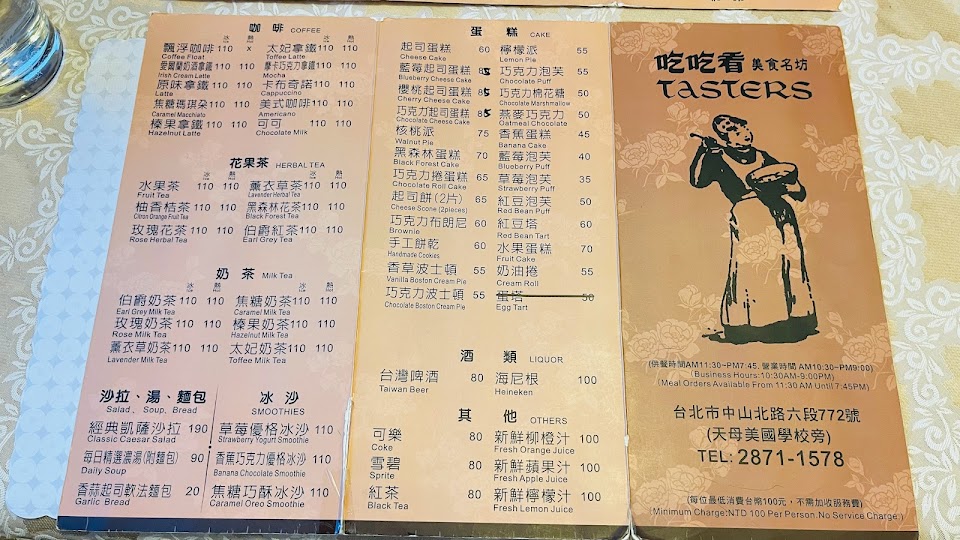 咖啡 COFFEE
冰 熱 冰 熱
飄浮咖啡 110 x 太妃拿鐵 110 110
Coffee Float Toffee Latte
愛爾蘭奶酒拿鐵 110 110 摩卡巧克力拿鐵 110 110
Irish Cream Latte Mocha
原味拿鐵 110 110 卡布奇諾 110 110
Latte Cappuccino
焦糖瑪琪朵 110 110 美式咖啡 110 110
Caramel Macchiato Americano
榛果拿鐵 110 110 可可 110 110
Hazelnut Latte Chocolate Milk
花果茶 HERBAL TEA
冰 熱 冰 熱
水果茶 110 110 薰衣草茶 110 110
Fruit Tea Lavender Herbal Tea
柚香桔茶 110 110 黑森林花茶 110 110
Citron Orange Fruit Tea Black Forest Tea
玫瑰花茶 110 110 伯爵紅茶 110 110
Rose Herbal Tea Earl Grey Tea
奶茶 Milk Tea
冰 熱 冰 熱
伯爵奶茶 110 110 焦糖奶茶 110 110
Earl Grey Milk Tea Caramel Milk Tea
玫瑰奶茶 110 110 榛果奶茶 110 110
Rose Milk Tea Hazelnut Milk Tea
薰衣草奶茶 110 110 太妃奶茶 110 110
Lavender Milk Tea Toffee Milk Tea
沙拉、湯、麵包
Salad、Soup、Bread
經典凱薩沙拉 190
Classic Caesar Salad
每日精選濃湯(附麵包) 90
Daily Soup
香蒜起司軟法麵包 20
Garlic Bread
冰沙
SMOOTHIES
草莓優格冰沙 110
Strawberry Yogurt Smoothie
香蕉巧克力優格冰沙 110
Banana Chocolate Smoothie
焦糖巧酥冰沙 110
Caramel Oreo Smoothie
蛋糕 CAKE
起司蛋糕 60 檸檬派 55
Cheese Cake Lemon Pie
藍莓起司蛋糕 85 巧克力泡芙 55
Blueberry Cheese Cake Chocolate Puff
櫻桃起司蛋糕 85 巧克力棉花糖 50
Cherry Cheese Cake Chocolate Marshmallow
巧克力起司蛋糕 85 燕麥巧克力 50
Chocolate Cheese Cake Oatmeal Chocolate
核桃派 75 香蕉蛋糕 45
Walnut Pie Banana Cake
黑森林蛋糕 70 藍莓泡芙 40
Black Forest Cake Blueberry Puff
巧克力捲蛋糕 65 草莓泡芙 35
Chocolate Roll Cake Strawberry Puff
起司餅(2片) 65 紅豆泡芙 50
Cheese Scone (2pieces) Red Bean Puff
巧克力布朗尼 60 紅豆塔 60
Brownie Red Bean Tart
手工餅乾 60 水果蛋糕 70
Handmade Cookies Fruit Cake
香草波士頓 55 奶油捲 55
Vanilla Boston Cream Pie Cream Roll
巧克力波士頓 55 蛋塔 50
Chocolate Boston Cream Pie Egg Tart
酒類 LIQUOR
台灣啤酒 80 海尼根 100
Taiwan Beer Heineken
其他 OTHERS
可樂 80 新鮮柳橙汁 100
Coke Fresh Orange Juice
雪碧 80 新鮮蘋果汁 100
Sprite Fresh Apple Juice
紅茶 80 新鮮檸檬汁 100
Black Tea Fresh Lemon Juice
吃吃看 美食名坊
TASTERS
(供餐時間AM11:30~PM7:45. 營業時間 AM10:30~PM9:00)
(Business Hours:10:30AM-9:00PM)
(Meal Orders Available From 11:30 AM Until 7:45PM)
台北市中山北路六段772號
(天母美國學校旁)
TEL: 2871-1578
(每位最低消費台幣100元，不需加收服務費)
(Minimum Charge:NTD 100 Per Person.No Service Charge.)